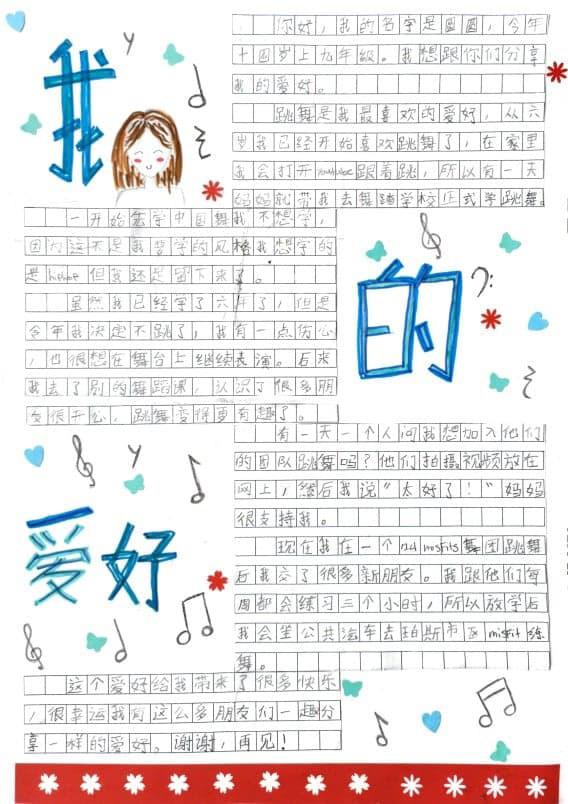 我
的
爱好
你好，我的名字是圆圆，今年
十四岁上九年级。我想跟你们分享
我的爱好。
跳舞是我最喜欢的爱好，从六
岁我已经开始喜欢跳舞了，在家里
我会打开youtube跟着跳，所以有一天
妈妈就带我去舞蹈学校正式学跳舞。
一开始去学中国舞我不想学，
因为这不是我要学的风格我想学的
是hiphop但我还是留下来了。
虽然我已经学了六年了，但是
今年我决定不跳了，我有一点伤心
，也很想在舞台上继续表演。后来
我去了别的舞蹈课，认识了很多朋
友很开心，跳舞变得更有趣了。
有一天一个人问我想加入他们
的团队跳舞吗？他们拍摄视频放在
网上，然后我说“太好了！”妈妈
很支持我。
现在我在一个 misfits舞团跳舞
后我交了很多新朋友。我跟他们每
周都会练习三个小时，所以放学后
我会坐公共汽车去珀斯市区misfit练
舞。
这个爱好给我带来了很多快乐
，很幸运我有这么多朋友们一起分
享一样的爱好。谢谢，再见！